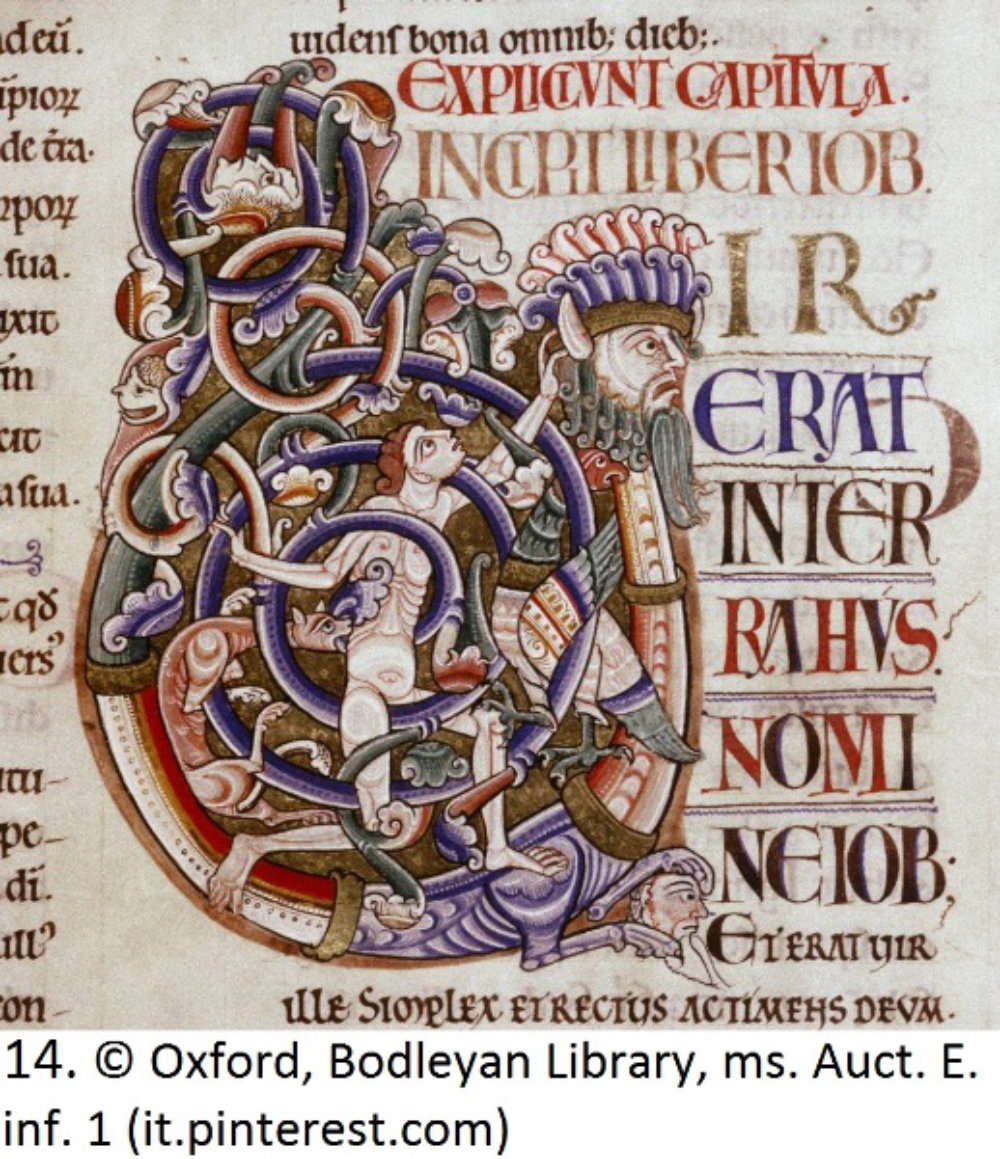 ſua.
a ſua.
pe-
di.
con-
uidenſ bona omnib; dieb;.
EXPLICIVNT CAPITVLA.
INCIPIT LIBER IOB.
IR
ERAT
INTER
RA HVS.
NOMI
NE IOB;
ET ERAT UIR
ILLE SIMPLEX ET RECTUS AC TIMENS DEVM.
14. © Oxford, Bodleyan Library, ms. Auct. E.
inf. 1 (it.pinterest.com)